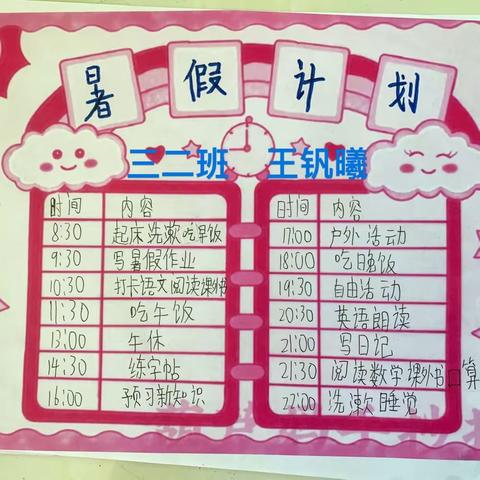 暑假计划
三二班 王钒曦
时间 内容
8:30 起床洗漱吃早饭
9:30 写暑假作业
10:30 打卡语文阅读课外书
11:30 吃午饭
13:00 午休
14:30 练字帖
16:00 预习新知识
时间 内容
17:00 户外活动
18:00 吃晚饭
19:30 自由活动
20:30 英语朗读
21:00 写日记
21:30 阅读数学课外书口算
22:00 洗漱睡觉